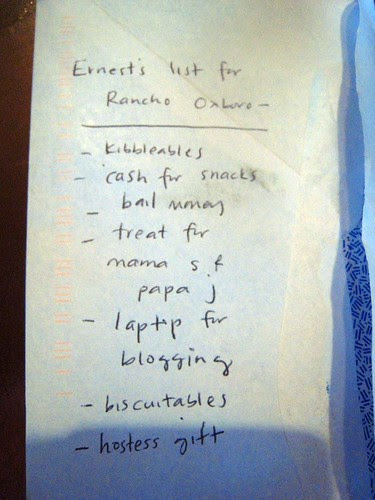 Ernest's list for
Rancho Oxboro -
- kibbleables
- cash for snacks
- bail money
- treat for
mama s &
papa j
- laptop for
blogging
- biscuitables
- hostess gift